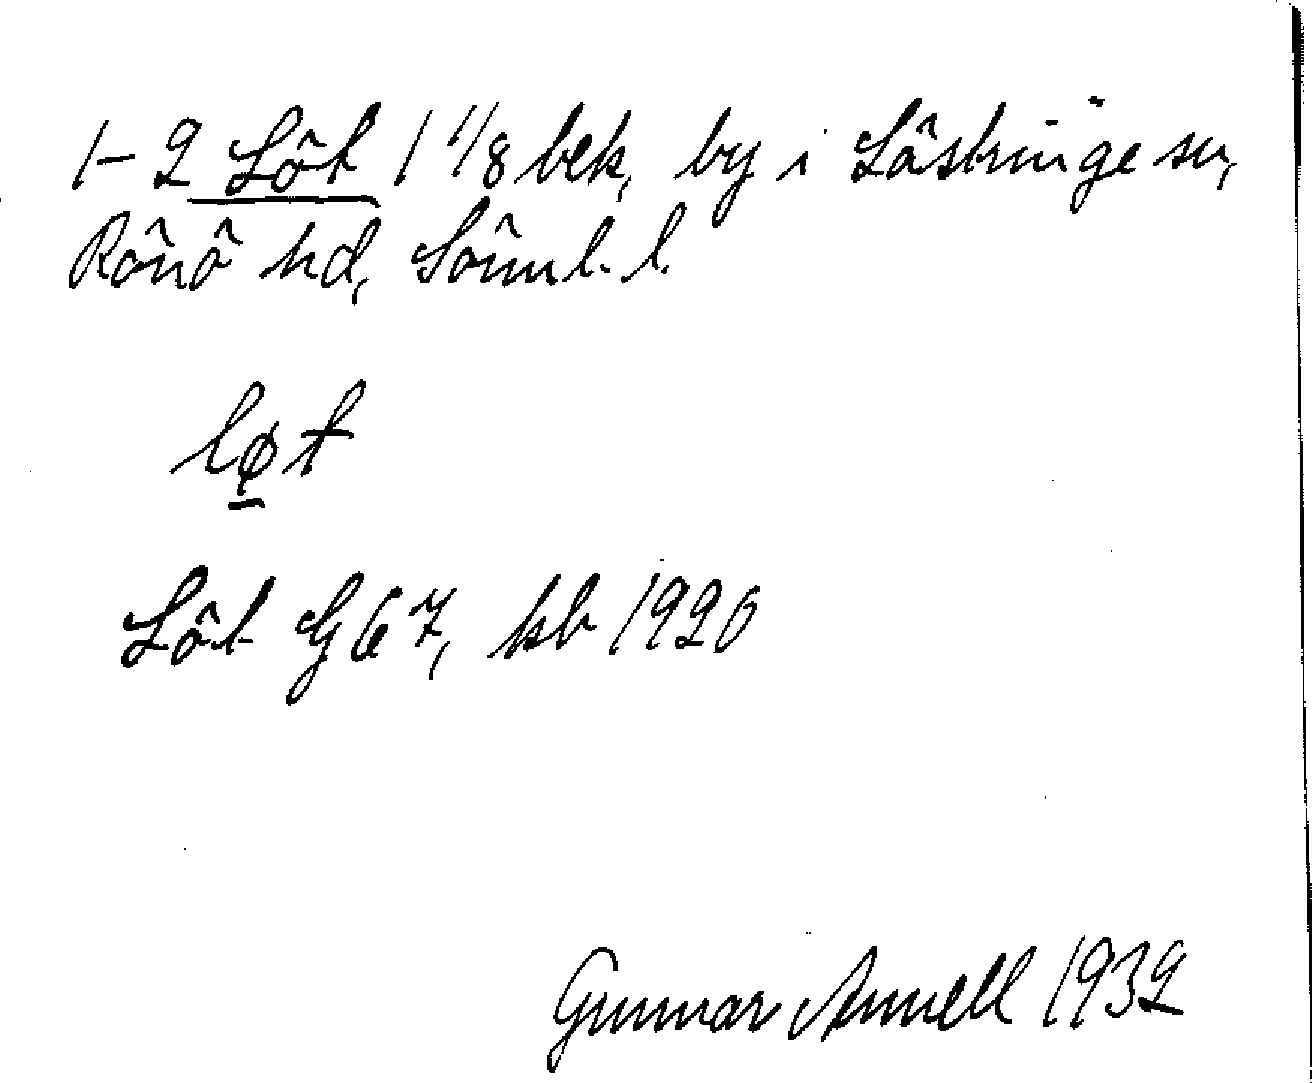 1-2 Löt 1 1/8 bek, by i Lästringe sn,
Rönö hd, Sörml. l.
løt
Löt G 67, kb 1920
Gunnar Annell 1932